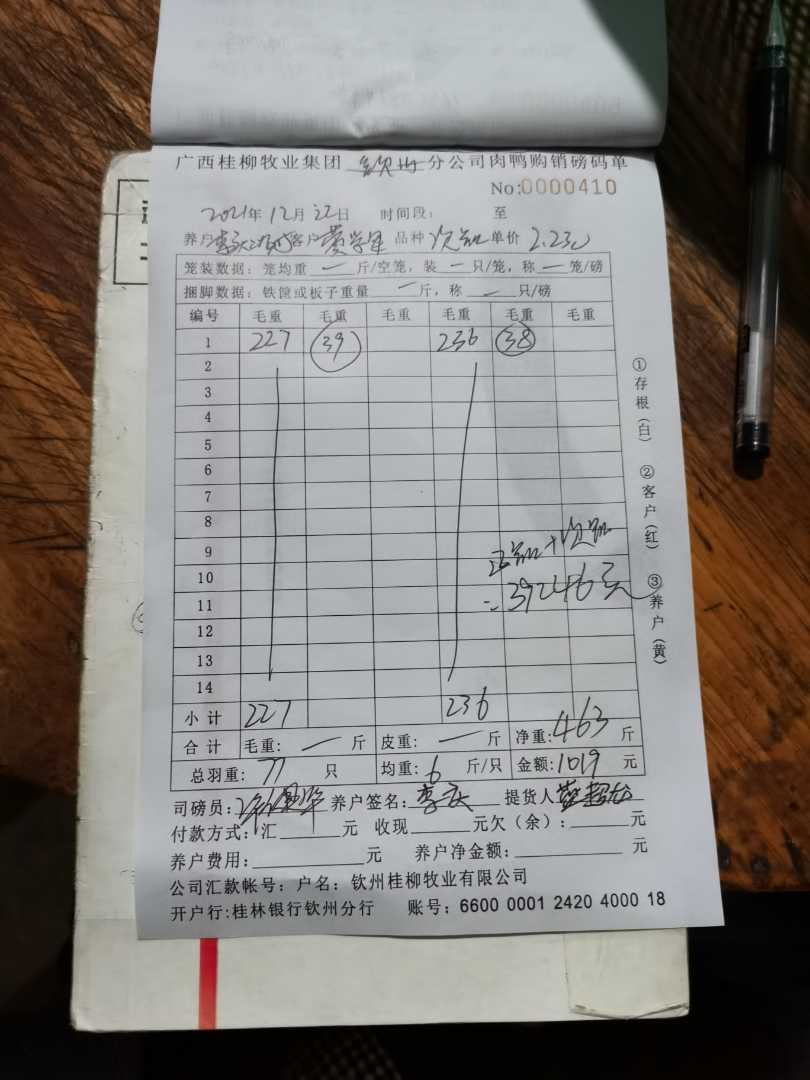 广西桂柳牧业集团 钦州 分公司肉鸭购销磅码单
No:0000410
2021年12月22日 时间段: 至
养户 客户 品种 次品 单价 2.2元
笼装数据: 笼均重 — 斤/空笼, 装 — 只/笼, 称 — 笼/磅
捆脚数据: 铁筐或板子重量 — 斤, 称 — 只/磅
编号 毛重 毛重 毛重 毛重 毛重 毛重
1 227 39 236 38
2
3
4
5
6
7
8
9
10
11
12
13
14
正品+次品
=39246元
小计 227 236
合计 毛重: — 斤 皮重: — 斤 净重: 463 斤
总羽重: 77 只 均重: 6 斤/只 金额: 1019 元
司磅员: 养户签名: 李庆 提货人
付款方式: 汇 元 收现 元欠(余): 元
养户费用: 元 养户净金额: 元
公司汇款帐号: 户名: 钦州桂柳牧业有限公司
开户行:桂林银行钦州分行 账号: 6600 0001 2420 4000 18
①存根(白) ②客户(红) ③养户(黄)